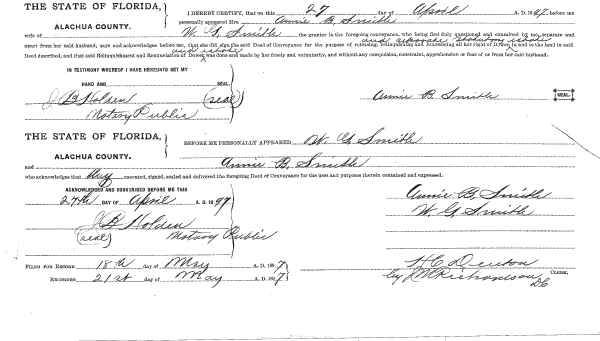 THE STATE OF FLORIDA,
ALACHUA COUNTY.
I HEREBY CERTIFY, that on this 27 day of April A. D. 1897, before me
personally appeared Mrs. Annie B. Smith
wife of W. G. Smith the grantor in the foregoing conveyance, who being first duly questioned and examined by me, separate and
apart from her said husband, says and acknowledges before me, that she did sign the said Deed of Conveyance for the purpose of releasing, relinquishing and renouncing all her right of Dower, in and to the land in said
Deed described, and that said Relinquishment and Renunciation of Dower, was done and made by her freely and voluntarily, and without any compulsion, constraint, apprehension or fear of or from her said husband.
IN TESTIMONY WHEREOF I HAVE HEREUNTO SET MY
HAND AND SEAL.
J B Holden (seal)
Notary Public
Annie B. Smith SEAL.
THE STATE OF FLORIDA,
ALACHUA COUNTY.
BEFORE ME PERSONALLY APPEARED W. G Smith
and Annie B. Smith
who acknowledges that they executed, signed, sealed and delivered the foregoing Deed of Conveyance for the uses and purposes herein contained and expressed.
ACKNOWLEDGED AND SUBSCRIBED BEFORE ME THIS
27th DAY OF April A. D. 1897
J B Holden
(seal) Notary Public
Annie B. Smith
W. G Smith
FILED FOR RECORD 18th day of May A. D. 1897
RECORDED 21st day of May A. D. 1897
H C Denton CLERK.
by J M Richardson DC